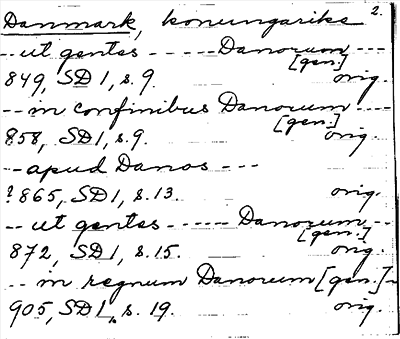 Danmark, konungarike 2.
-- ut gentes ----- Danorum ---
[gen.]
849, SD 1, s. 9. orig.
-- in confinibus Danorum ----
[gen.]
858, SD 1, s. 9. orig.
-- apud Danos ---
?865, SD 1, s. 13. orig.
-- ut gentes ----- Danorum --
[gen.]
872, SD 1, s. 15. orig.
-- in regnum Danorum [gen.] -
905, SD 1, s. 19. orig.